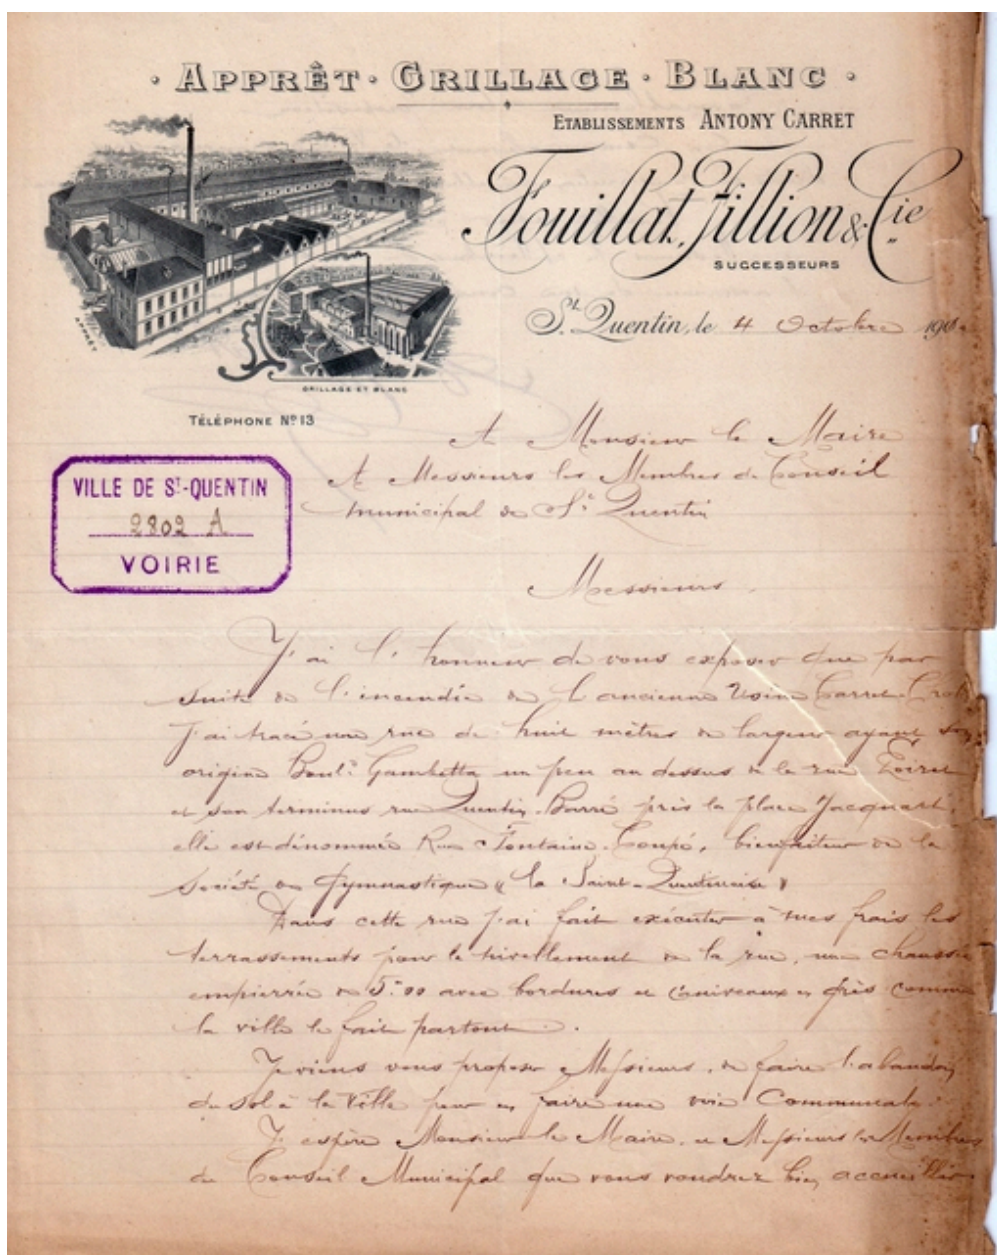 · APPRÊT · GRILLAGE · BLANC ·
ETABLISSEMENTS ANTONY CARRET
Fouillat, Fillion & Cie
SUCCESSEURS
St. Quentin, le 4 Octobre 190
APPRÊT
GRILLAGE ET BLANC
TÉLÉPHONE Nº 13
A Monsieur le Maire
A Messieurs les Membres du Conseil
municipal de St Quentin
VILLE DE ST-QUENTIN
2802 A
VOIRIE
Messieurs
J'ai l'honneur de vous exposer que par
suite de l'incendie de l'ancienne Usine Carret
j'ai tracé une rue de huit mètres de largeur ayant son
origine Bould Gambetta un peu au dessus de la rue
et son terminus rue Quentin-Barré près la place Jacquart
elle est dénommée Rue Fontaine-Coupé, bienfaiteur de la
Société de Gymnastique "la Saint-Quentinoise"
Dans cette rue j'ai fait exécuter à mes frais les
terrassements pour le nivellement de la rue, une chaussée
empierrée de 5m00 avec bordures et caniveaux en grès comme
la ville le fait partout.
Je viens vous proposer Messieurs, de faire l'abandon
du sol à la Ville pour en faire une voie Communale.
J'espère Monsieur le Maire, et Messieurs les Membres
du Conseil Municipal que vous voudrez bien accueillir